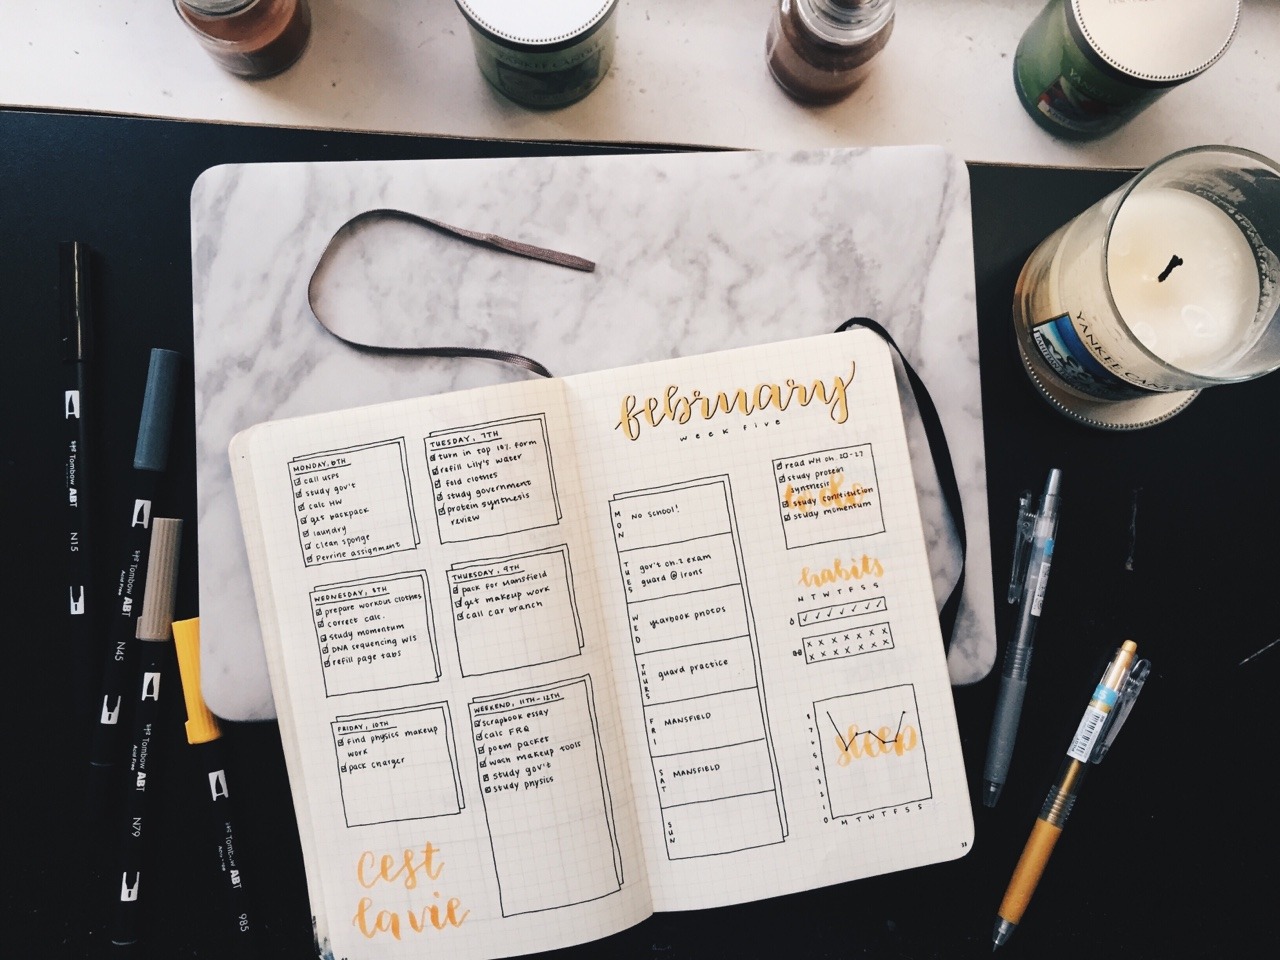 YANKEE CANDLE
YANKEE CANDLE
Tombow ABT
N15
Tombow ABT
Acid Free
N45
Tombow ABT
N79
Tombow ABT
985
MONDAY, 6TH
call USPS
study gov't
calc HW
get backpack
laundry
clean sponge
Perrine assignment
TUESDAY, 7TH
turn in top 10% form
refill Lily's water
fold clothes
study government
protein synthesis
review
WEDNESDAY, 8TH
prepare workout clothes
correct calc.
study momentum
DNA sequencing WS
refill page tabs
THURSDAY, 9TH
pack for Mansfield
get makeup work
call car branch
FRIDAY, 10TH
find physics makeup
work
pack charger
WEEKEND, 11TH-12TH
scrapbook essay
calc FRQ
poem packet
wash makeup tools
study gov't
study physics
C'est
la vie
february
week five
MON
NO School!
TUES
gov't ch.2 exam
guard @ Irons
WED
yearbook photos
THURS
guard practice
FRI
MANSFIELD
SAT
MANSFIELD
SUN
to do
read WH ch. 20-27
study protein
synthesis
study constitution
study momentum
habits
M T W T F S S
sleep
8
7
6
5
4
3
2
1
0
M T W T F S S